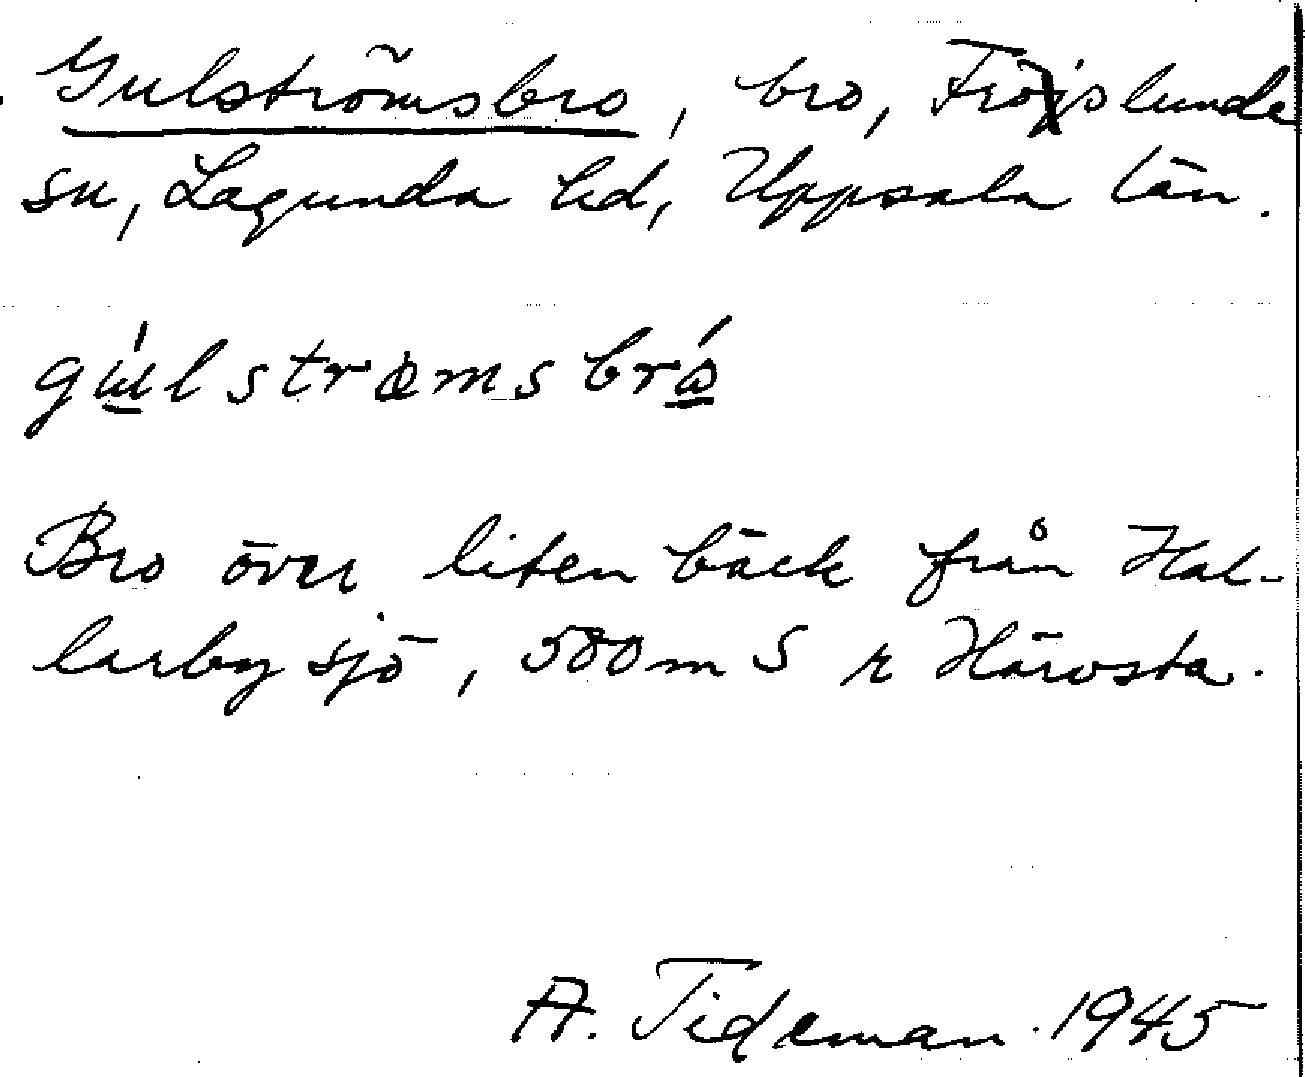 Gulströmsbro, bro, Fröslunda
sn, Lagunda hd, Uppsala län.
gu̲lstrømsbro̲
Bro över liten bäck från Hal-
larby sjö, 500 m S r Härvsta.
A. Tideman 1945